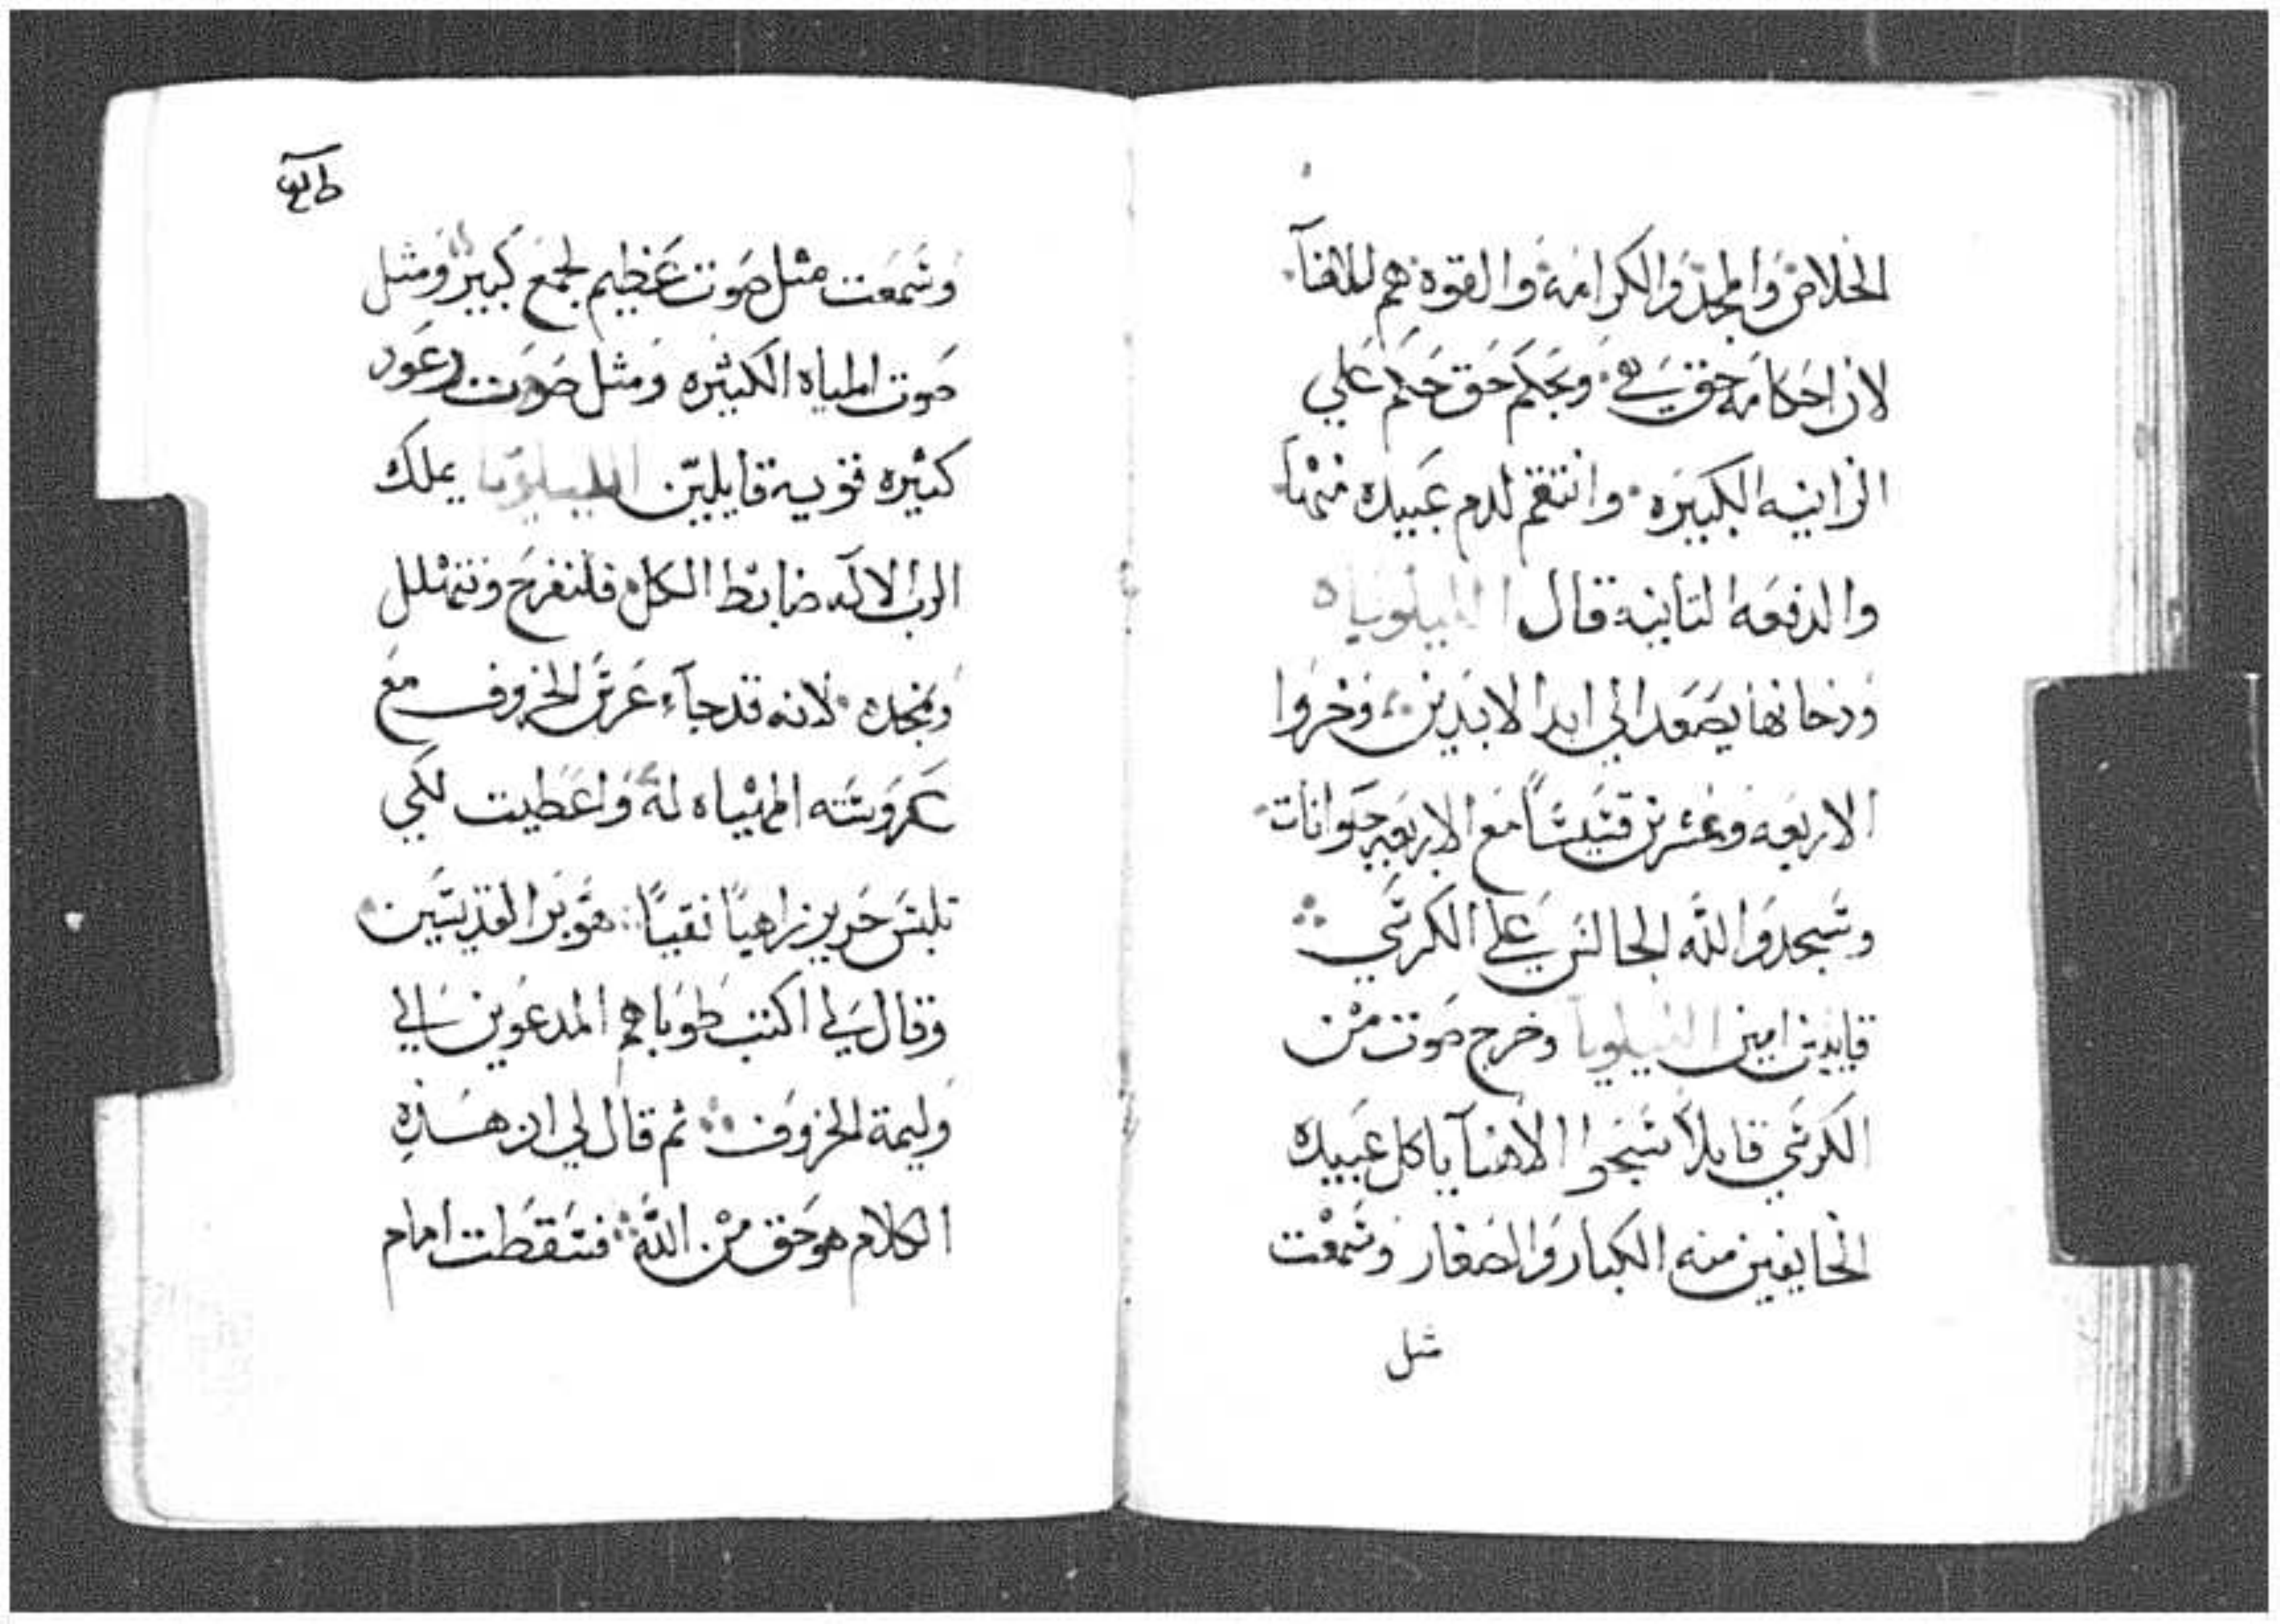 الخلاص والمجد والكرامة والقوة هم لالاهنا
لان احكامه حق هي وبحكم حق حكم علي
الزانيه الكبيره وانتقم لدم عبيده منها
والدفعه التانيه قال الليلويا
ودخانها يصعد الي ابد الابدين وخروا
الاربعه وعشرين قسيسًا مع الاربعه حيوانات
وسجدوا لله الجالس علي الكرسي
قايلين امين الليلويا وخرج صوت من
الكرسي قايلاً سبحوا الاهنا يا كل عبيده
الخايفين منه الكبار والصغار وسمعت
مثل
وسمعت مثل صوت عظيم لجمع كبير ومثل
صوت المياه الكثيره ومثل صوت رعود
كثيره قويه قايلين الليلويا يملك
الرب الاله ضابط الكل فلنفرح ونتهلل
ونمجده لانه قد جآء عرس الخروف مع
عروسته المهياه له واعطيت لكي
تلبس حرير زاهيًا نقيًا هو بر القديسين
وقال لي اكتب طوباهم المدعوين الي
وليمة الخروف ثم قال لي ان هذه
الكلام هو حق من الله فسقطت امام